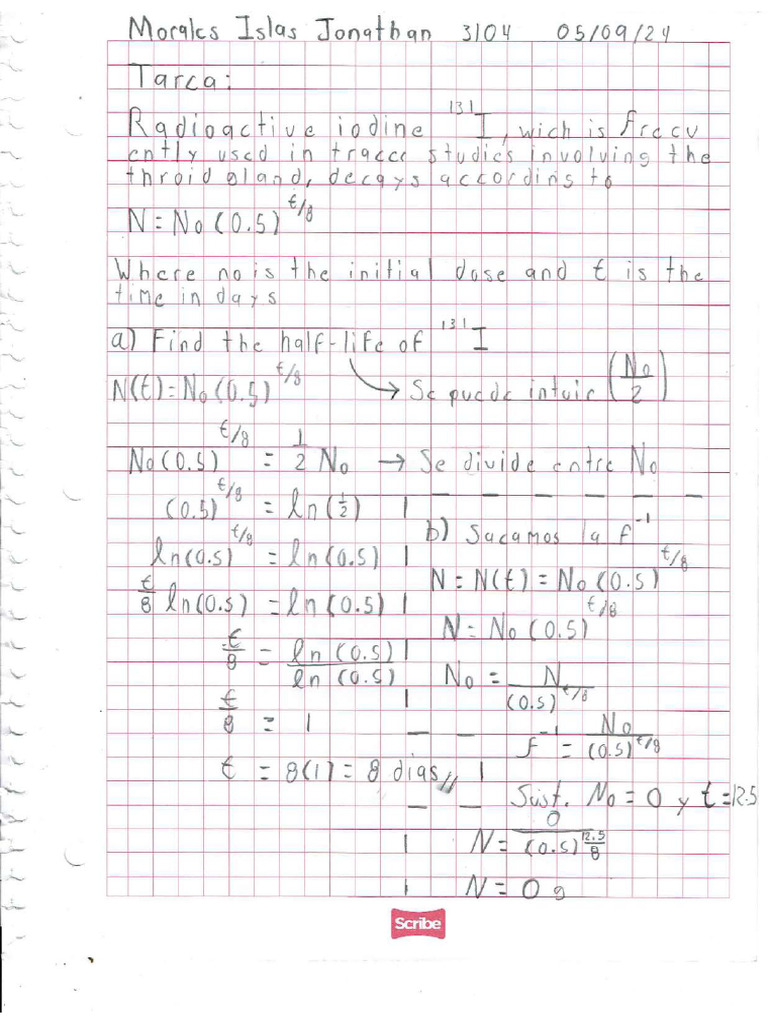 Morales Islas Jonathan 3104 05/09/24
Tarea:
Radioactive iodine ¹³¹I, wich is frecu
ently used in tracer studies involving the
throid gland, decays accordins to
N = No (0.5)^t/8
Where no is the initial dose and t is the
time in days
a) Find the half-life of ¹³¹I
N(t) = No (0.5)^t/8 → Se puede intuir (No/2)
No (0.5)^t/8 = 1/2 No → Se divide entre No
(0.5)^t/8 = ln(1/2)
ln(0.5)^t/8 = ln(0.5)
t/8 ln(0.5) = ln(0.5)
t/8 = ln(0.5)/ln(0.5)
t/8 = 1
t = 8(1) = 8 dias //
b) Sacamos la f⁻¹
N = N(t) = No (0.5)^t/8
N = No (0.5)^t/8
No = N/(0.5)^t/8
f⁻¹ = No/(0.5)^t/8
Sust. No = 0 y t = 12.5
N = 0/(0.5)^12.5/8
N = 0 g
Scribe